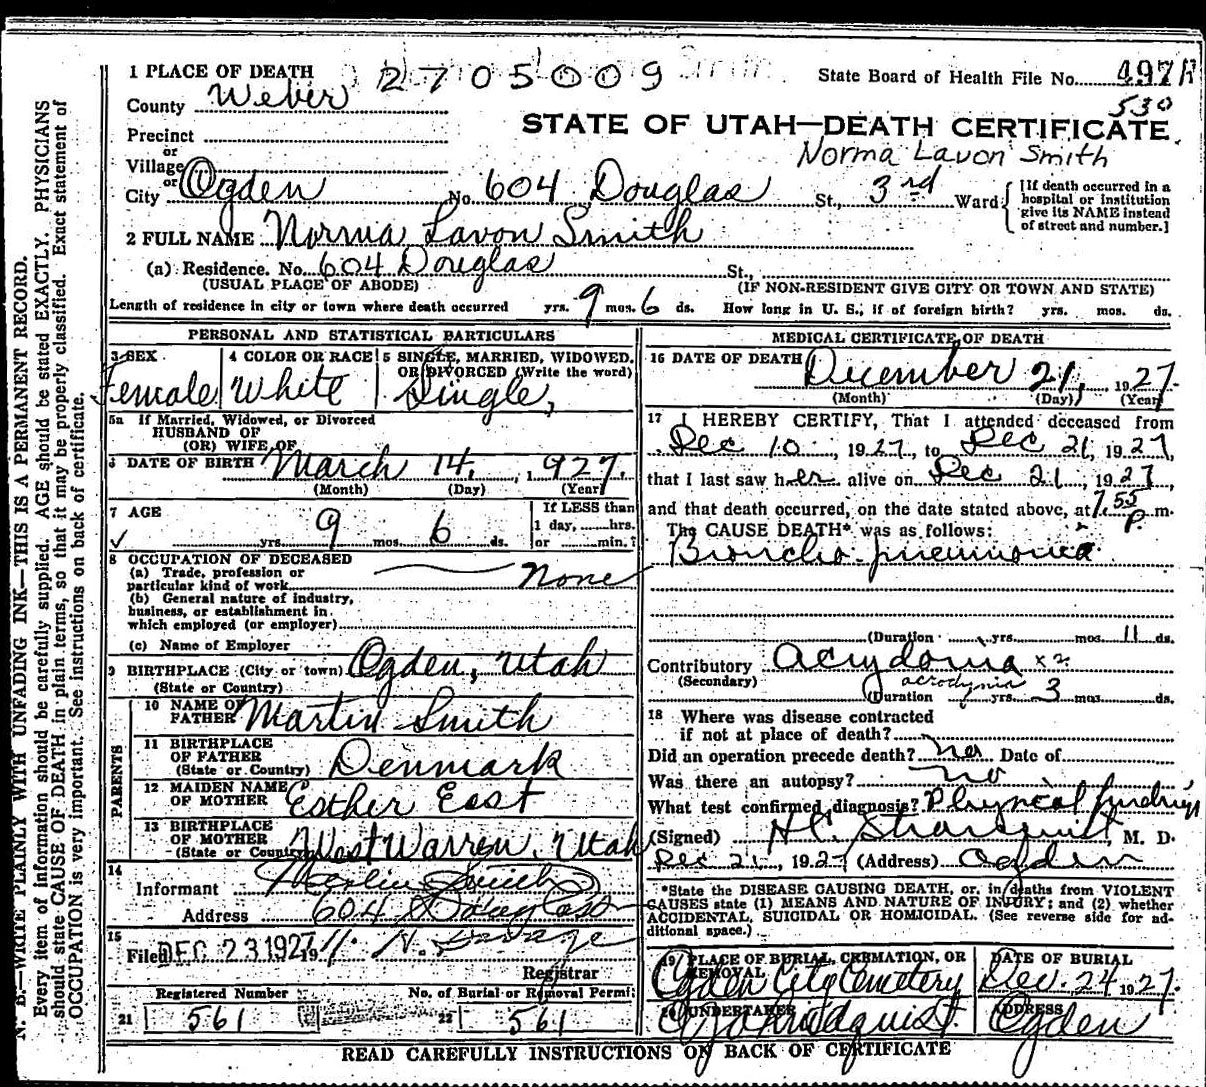 1 PLACE OF DEATH 2705009 State Board of Health File No. 497
County Weber 530
STATE OF UTAH—DEATH CERTIFICATE
Precinct
or
Norma Lavon Smith
Village
or
City Ogden No. 604 Douglas St., 3rd Ward
[If death occurred in a hospital or institution give its NAME instead of street and number.]
2 FULL NAME Norma Lavon Smith
(a) Residence. No. 604 Douglas St.,
(USUAL PLACE OF ABODE) (IF NON-RESIDENT GIVE CITY OR TOWN AND STATE)
Length of residence in city or town where death occurred yrs. 9 mos. 6 ds. How long in U. S., if of foreign birth? yrs. mos. ds.
PERSONAL AND STATISTICAL PARTICULARS
3 SEX 4 COLOR OR RACE 5 SINGLE, MARRIED, WIDOWED.
OR DIVORCED (Write the word)
Female White Single,
5a If Married, Widowed, or Divorced
HUSBAND OF
(OR) WIFE OF
6 DATE OF BIRTH March 14, 1927.
(Month) (Day) (Year)
7 AGE If LESS than
1 day, hrs.
yrs. 9 mos. 6 ds. or min.?
8 OCCUPATION OF DECEASED
(a) Trade, profession or
particular kind of work none
(b) General nature of industry,
business, or establishment in
which employed (or employer)
(c) Name of Employer
9 BIRTHPLACE (City or town) Ogden, Utah
(State or Country)
PARENTS
10 NAME OF
FATHER Martin Smith
11 BIRTHPLACE
OF FATHER
(State or Country) Denmark
12 MAIDEN NAME
OF MOTHER Esther East
13 BIRTHPLACE
OF MOTHER
(State or Country) West Warren, Utah
14
Informant Smith
Address 604 Douglas
15
Filed DEC 23 1927 19 Savage
Registrar
Registered Number No. of Burial or Removal Permit
21 561 22 561
MEDICAL CERTIFICATE OF DEATH
16 DATE OF DEATH December 21, 1927.
(Month) (Day) (Year)
17 I HEREBY CERTIFY, That I attended deceased from
Dec 10, 1927, to Dec 21, 1927,
that I last saw her alive on Dec 21, 1927,
and that death occurred, on the date stated above, at 7.55 P. m.
The CAUSE DEATH* was as follows:
Broncho-pneumonia
(Duration yrs. mos. 11 ds.
Contributory Acrydonia x2
(Secondary) acrodynia
(Duration yrs. 3 mos. ds.
18 Where was disease contracted
if not at place of death?
Did an operation precede death? no Date of
Was there an autopsy? no
What test confirmed diagnosis? Physical findings
(Signed) H.C. Stranquist M. D.
Dec 21, 1927 (Address) Ogden
*State the DISEASE CAUSING DEATH, or, in deaths from VIOLENT
CAUSES state (1) MEANS AND NATURE OF INJURY; and (2) whether
ACCIDENTAL, SUICIDAL OR HOMICIDAL. (See reverse side for ad-
ditional space.)
19 PLACE OF BURIAL, CREMATION, OR
REMOVAL
DATE OF BURIAL
Ogden City Cemetery Dec. 24 1927.
20 UNDERTAKER ADDRESS
Ogden
READ CAREFULLY INSTRUCTIONS ON BACK OF CERTIFICATE
N. B.—WRITE PLAINLY WITH UNFADING INK—THIS IS A PERMANENT RECORD.
Every item of information should be carefully supplied. AGE should be stated EXACTLY. PHYSICIANS
should state CAUSE OF DEATH in plain terms, so that it may be properly classified. Exact statement of
OCCUPATION is very important. See instructions on back of certificate.